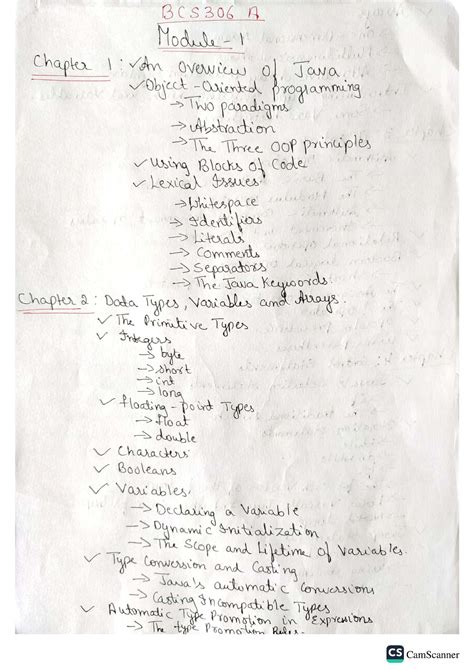 BCS306 A
Module-1
Chapter 1: ✓An Overview of Java
✓Object-Oriented programming
→Two paradigms
→Abstraction
→The Three OOP principles
✓Using Blocks of Code
✓Lexical Issues
→Whitespace
→Identifiers
→Literals
→Comments
→Separators
→The Java Keywords.
Chapter 2: Data Types, Variables and Arrays.
✓The Primitive Types
✓Integers
→byte
→short
→int
→long
✓floating-point Types
→float
→double
✓Characters
✓Booleans
✓Variables
→Declaring a Variable
→Dynamic Initialization
→The Scope and Lifetime of Variables.
✓Type Conversion and Casting
→Java's automatic Conversions
→Casting Incompatible Types
✓Automatic Type Promotion in Expressions
→The type Promotion Rules.
CS CamScanner